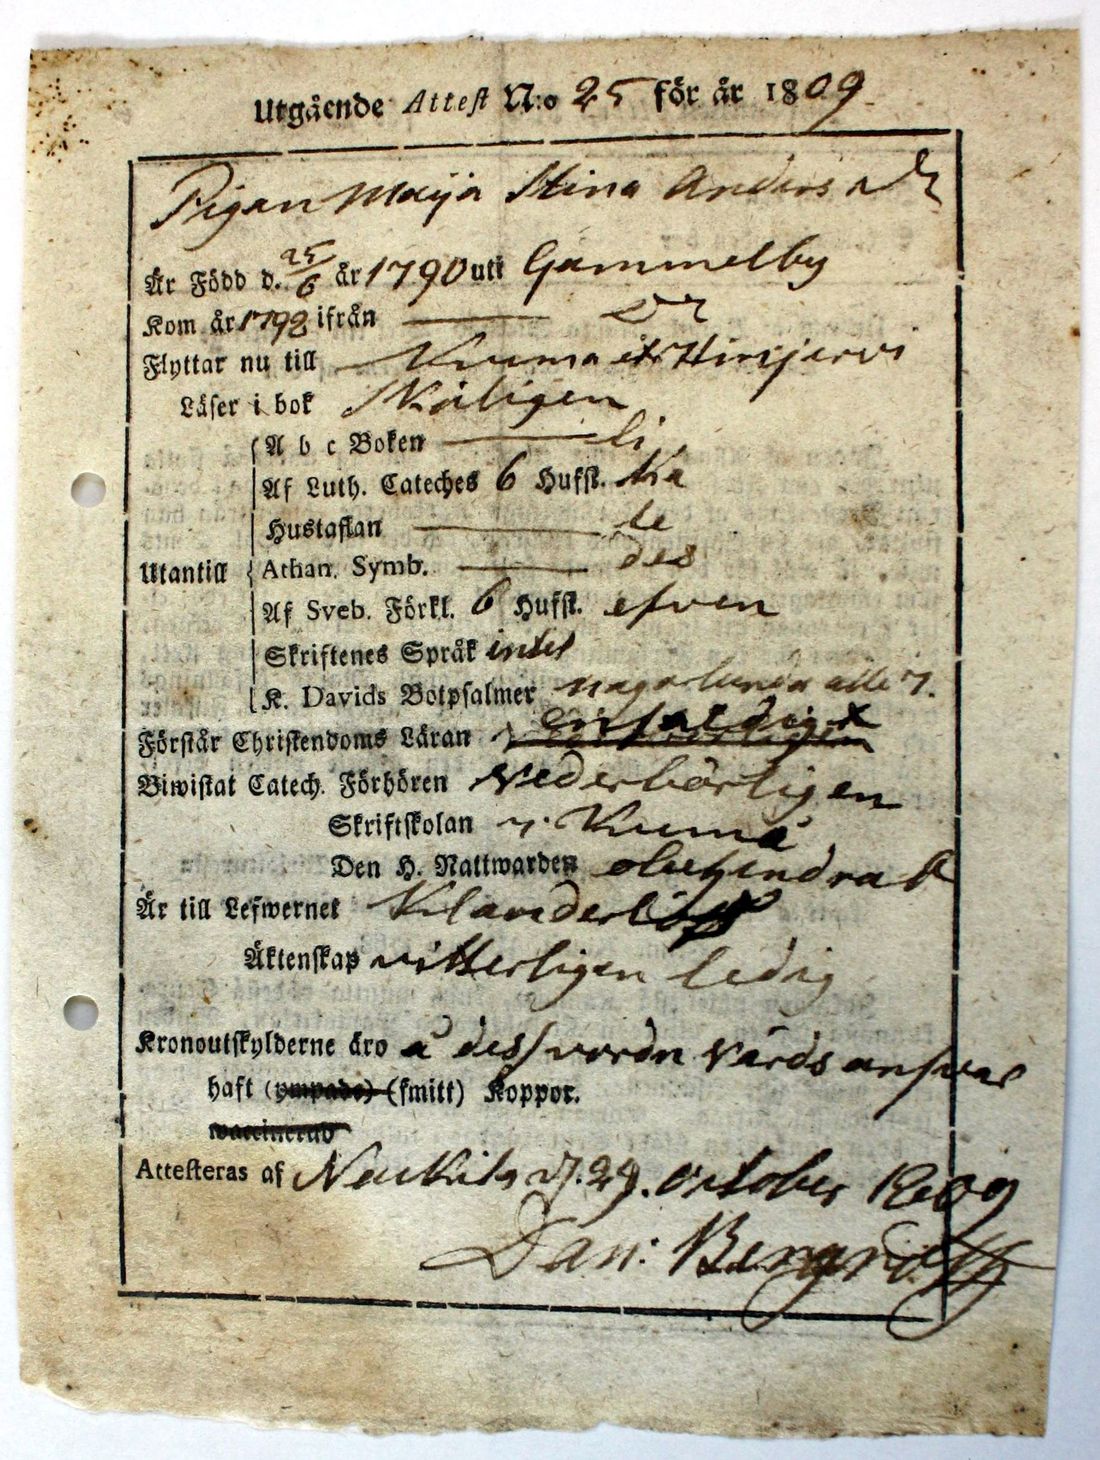 Utgående Attest N:o 25 för år 1809
Pigan Maija Stina Anders dr
Är Född d. 25/6 år 1790 uti Gammelby
Kom år 1792 ifrån — Dr
Flyttar nu till Kumå Hinjervi
Läser i bok Skäligen
A b c Boken — li
Af Luth. Cateches 6 Hufst. ka
Hustaflan — le
Utantill Athan. Symb. — des
Af Sveb. Förkl. 6 Hufst. efven
Skriftenes Språk intet
K. Davids Botpsalmer någorlunda alle 7.
Förstår Christendoms Läran Enfaldigt
Biwistat Catech. Förhören Vederbörligen
Skriftskolan i Kumå
Den H. Nattwarden obehindrat
Är till Lefwernet Klanderlös
Äktenskap vitterligen ledig
Kronoutskylderne äro å dess vordn vårds answar
haft (ympade) (smitt) Koppor.
waccinerad
Attesteras af Nackila d. 29. October 1809
Dan: Bergroth